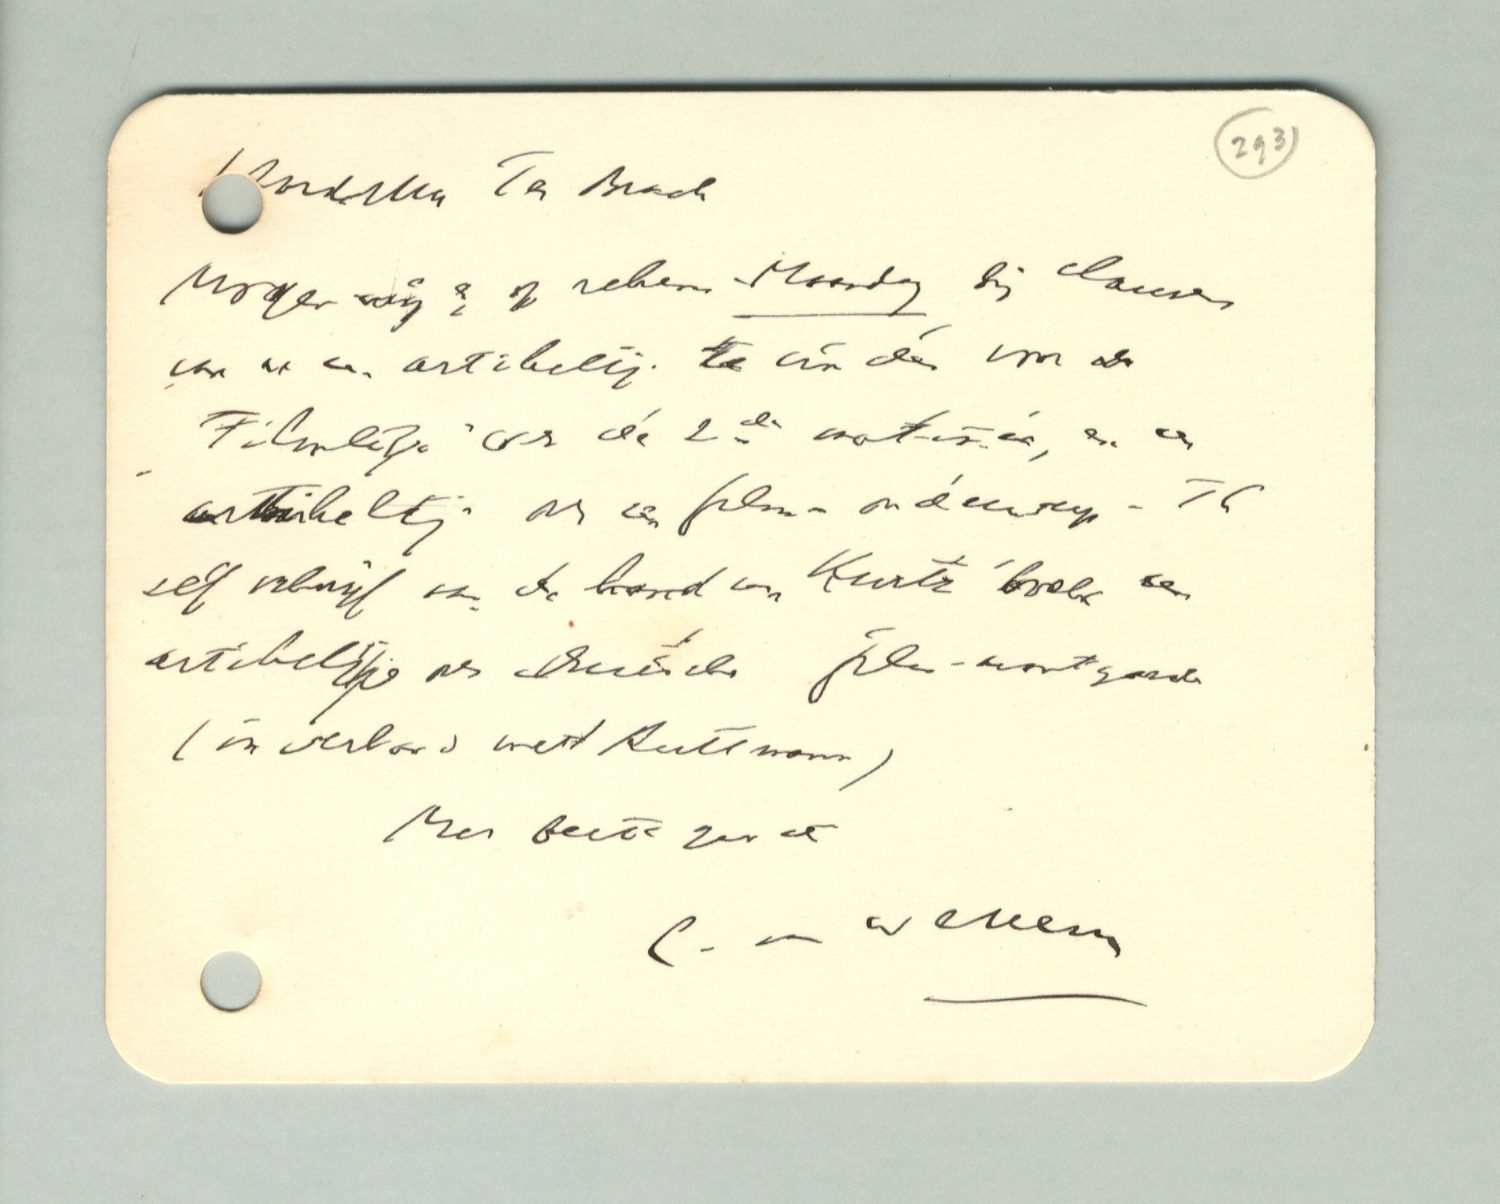 293
Waarde Ter Braak
Morgen mag ik op rekenen Maandag bij Clausen
van u een artikeltje te vinden voor de
Filmliga over de 2de matinée, en een
artikeltje over een film-onderwerp. Ik
zelf schrijf aan de hand van Kurtz' boek een
artikeltje over Duitsche film-avantgarde
(in verband met Ruttmann)
Met beste groet
C. van Wessem